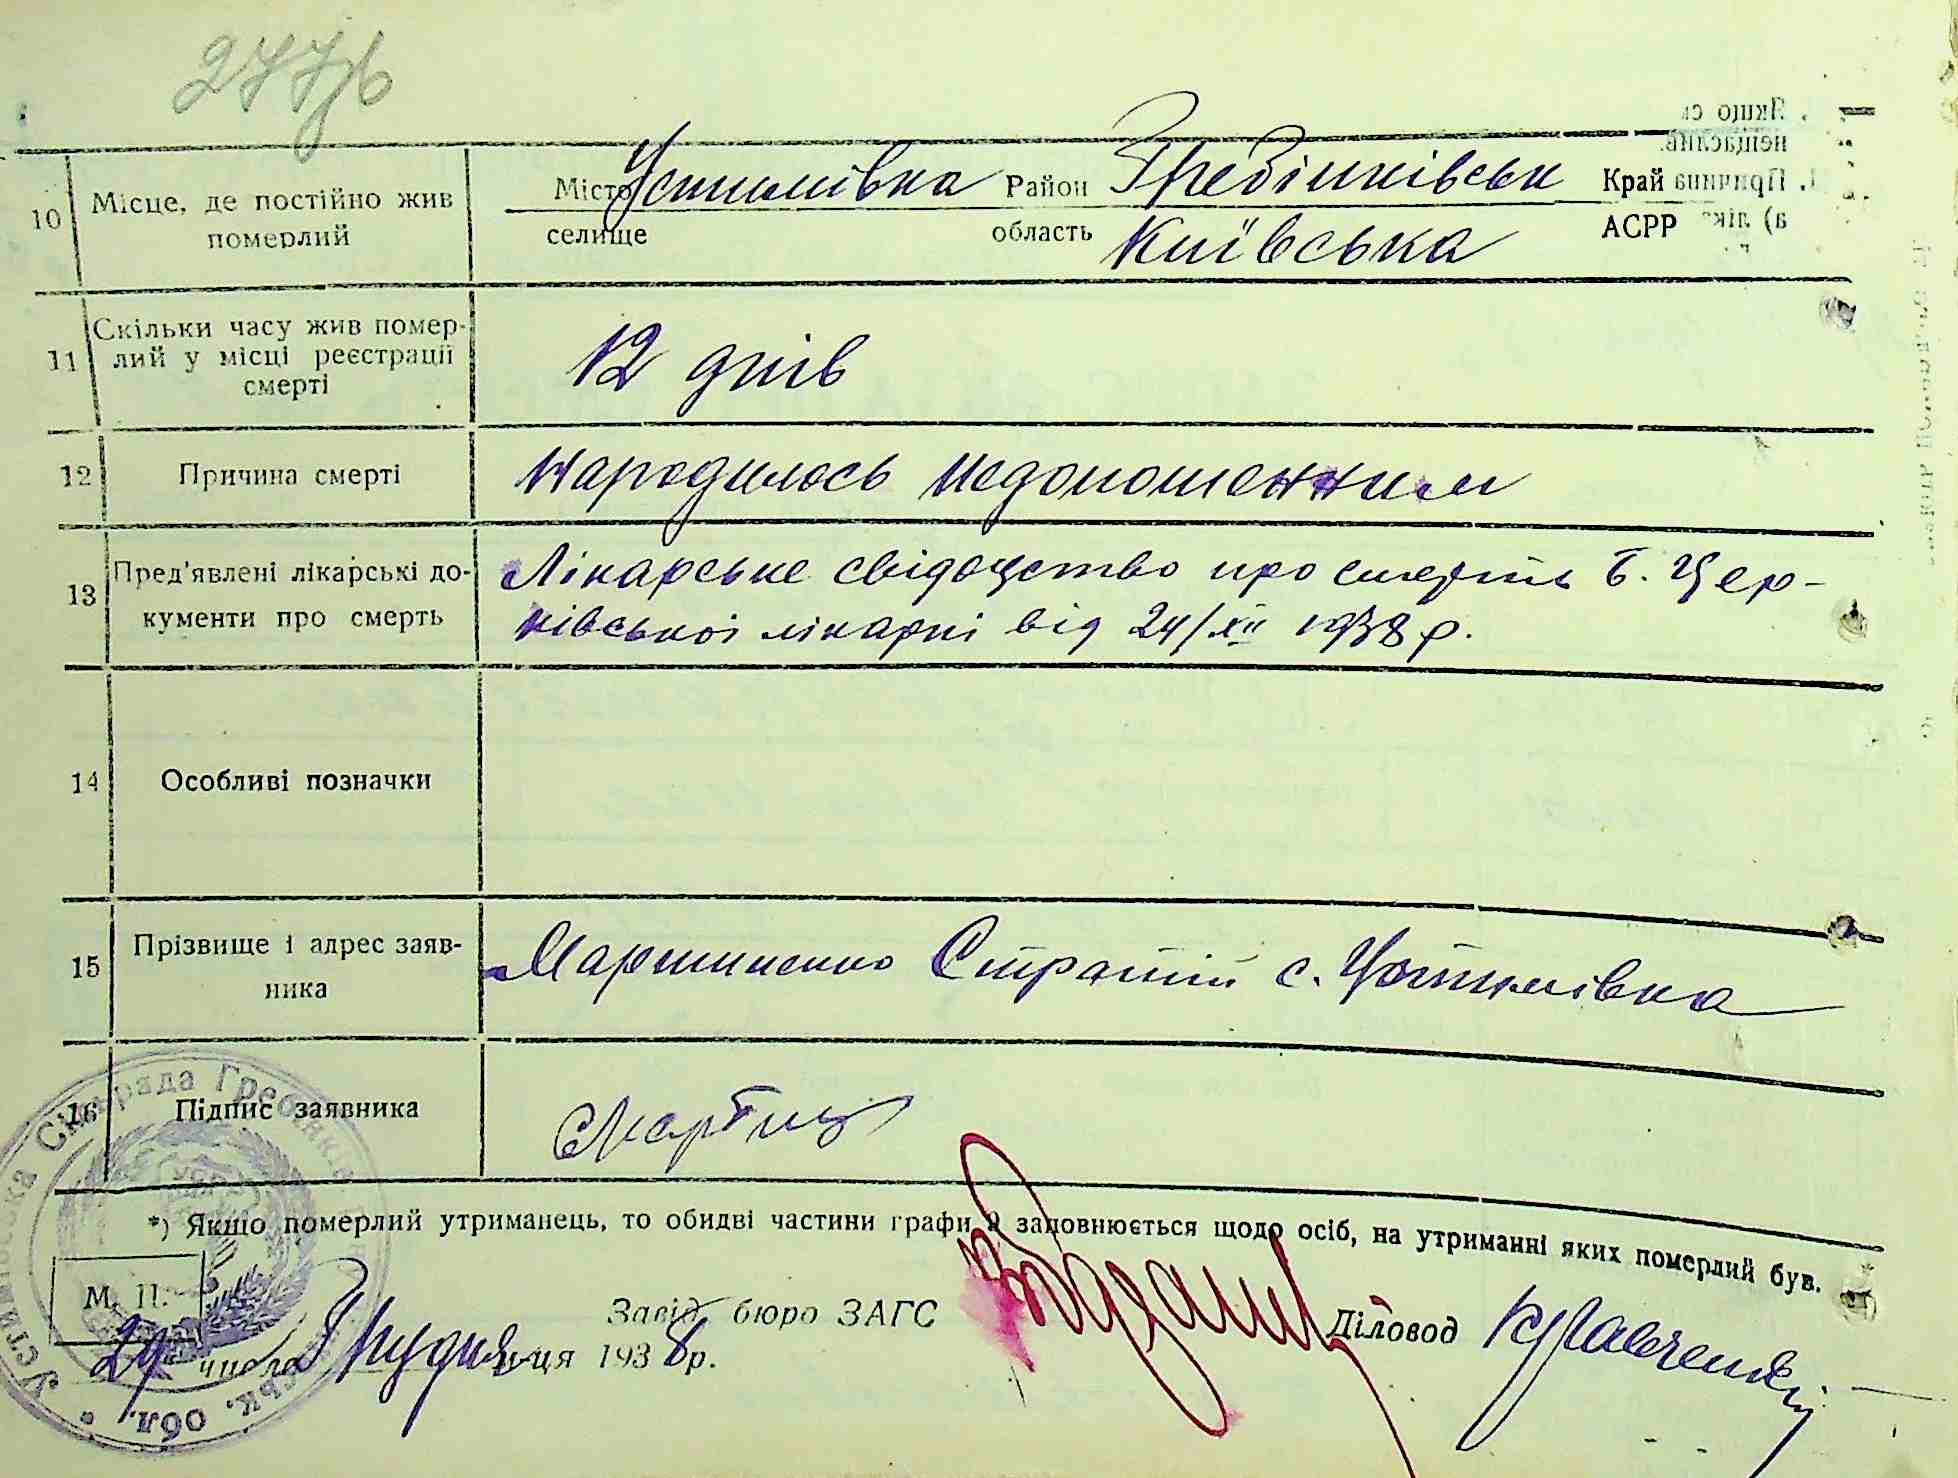 277
10 Місце, де постійно жив померлий
Місто Устимівка Район Гребінківськ Край
селище область Київська АСРР
11 Скільки часу жив помер-
лий у місці реєстрації
смерті
12 днів
12 Причина смерті
Народилось недоношенним
13 Пред'явлені лікарські до-
кументи про смерть
Лікарське свідоцтво про смерть Б. Цер-
ківської лікарні від 24/XII 1938 р.
14 Особливі позначки
15 Прізвище і адрес заяв-
ника
Мартиненко Стратій с. Устимівка
16 Підпис заявника
*) Якщо померлий утриманець, то обидві частини графи 9 заповнюється щодо осіб, на утриманні яких померлий був.
М. П.
Завід. бюро ЗАГС Діловод Кравченко
29 числа Грудня місяця 1938 р.